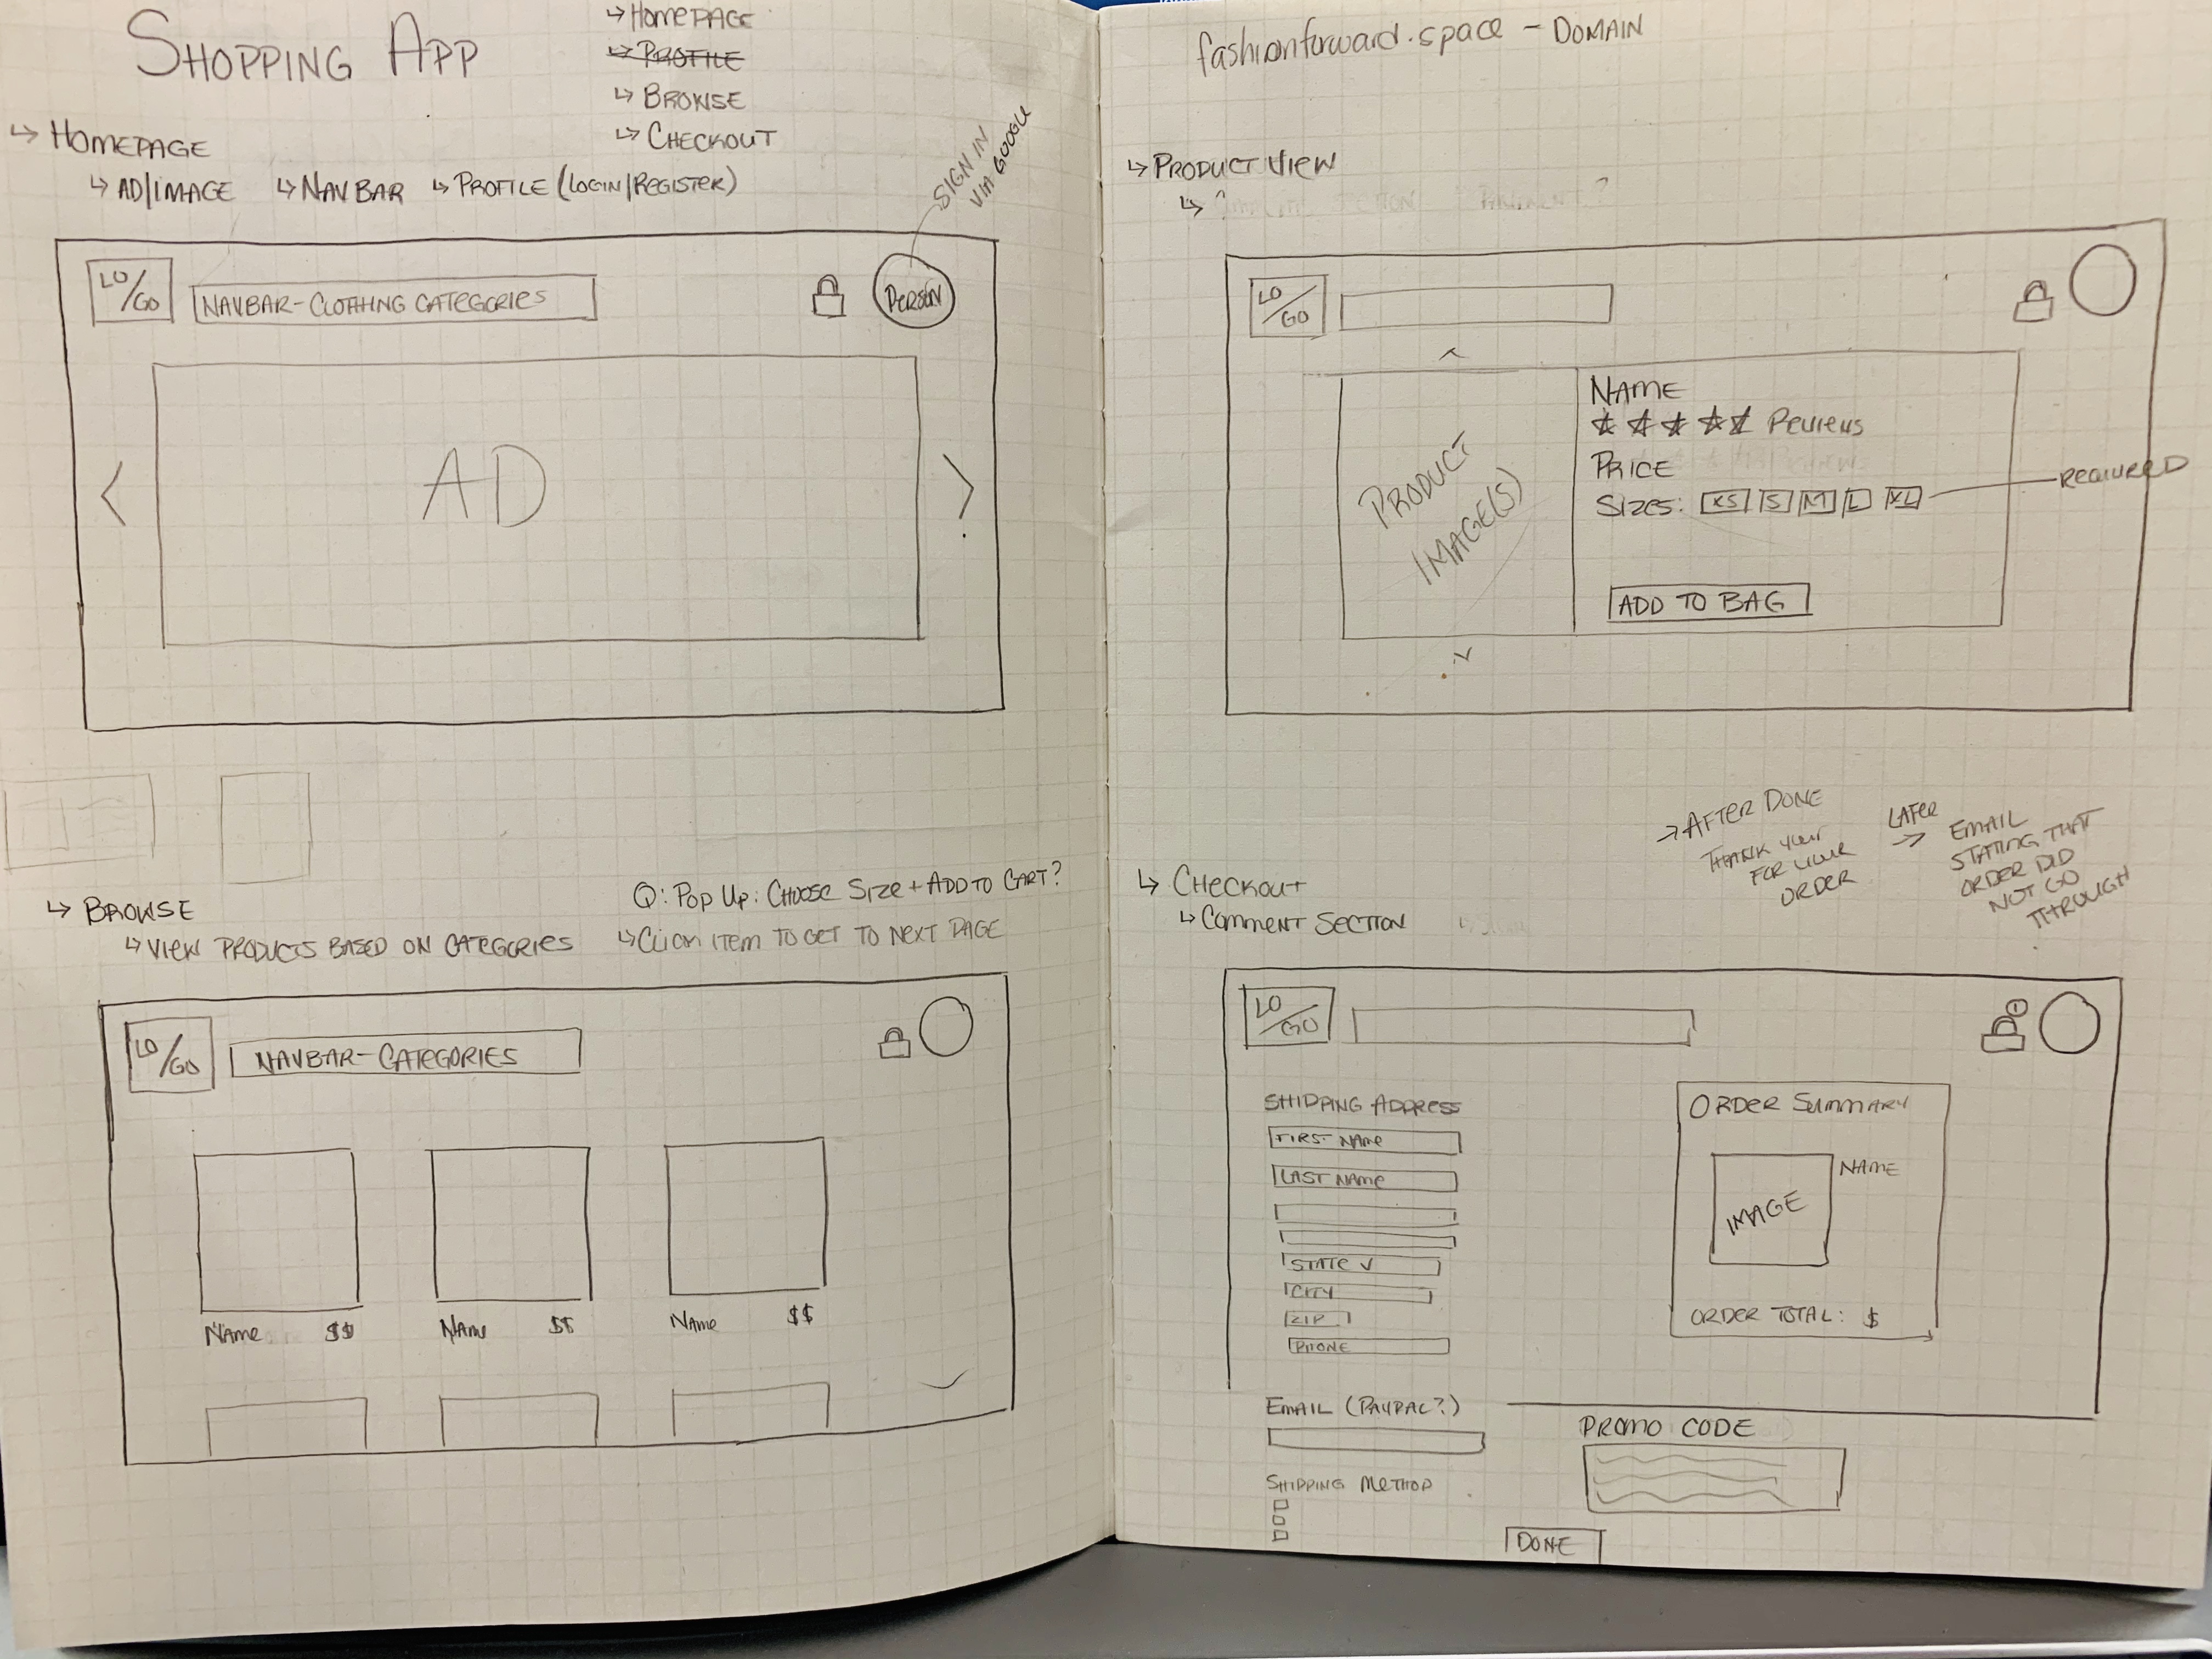 SHOPPING APP
↳ HOMEPAGE
↳ PROFILE
↳ BROWSE
↳ CHECKOUT
↳ HOMEPAGE
↳ AD/IMAGE ↳ NAVBAR ↳ PROFILE (LOGIN/REGISTER)
SIGN IN
VIA GOOGLE
LO/GO
NAVBAR-CLOTHING CATEGORIES
PERSON
< AD >
Q: POP UP: CHOOSE SIZE + ADD TO CART?
↳ BROWSE
↳ VIEW PRODUCTS BASED ON CATEGORIES ↳ CLICK ITEM TO GET TO NEXT PAGE
LO/GO
NAVBAR-CATEGORIES
NAME $$ NAME $$ NAME $$
fashionforward.space - DOMAIN
↳ PRODUCT VIEW
↳ ?
LO/GO
PRODUCT
IMAGE(S)
NAME
Reviews
PRICE
SIZES: XS S M L XL
REQUIRED
ADD TO BAG
→ AFTER DONE
THANK YOUR
FOR YOUR
ORDER
LATER
→
EMAIL
STATING THAT
ORDER DID
NOT GO
THROUGH
↳ CHECKOUT
↳ COMMENT SECTION
LO/GO
SHIPPING ADDRESS
FIRST NAME
LAST NAME
STATE
CITY
ZIP
PHONE
ORDER SUMMARY
IMAGE
NAME
ORDER TOTAL: $
EMAIL (PAYPAL?)
PROMO CODE
SHIPPING METHOD
DONE